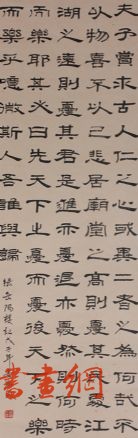 夫子嘗求古人仁之心或異二者之為何哉不
以物喜不以己悲居廟堂之高則憂其民處江
湖之遠則憂其君是進亦憂退亦憂然則何時
而樂耶其必曰先天下之憂而憂後天下之樂
而樂乎噫微斯人吾誰與歸
錄岳陽樓記
書畫網